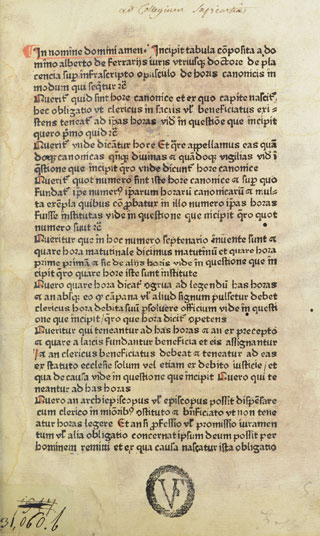 ad Collegium Sapientiae
In nomine domini amen. Incipit tabula cōposita a do
mino alberto de ferrariis iuris utriusq; doctore de pla
cencia sup infrascripto opusculo de horis canonicis in
modum qui sequtur
Queritur quid sint hore canonice et ex quo capite nascit
hec obligatio vt clericus in sacris vel beneficiatus exi
stens teneat ad ipas horas vid in questione que incipit
quero primo quid
Queritur vnde dicātur hore Et quare appellamus eas quā
doq; canonicas qnq; divinas a quādoq; vigilias vid i
qstione que incipit qro vnde dicunt hore canonice
Queritur quot numero sint iste hore canonice a sup quo
fundat ipe numer ipsarum horarū canonicarū a mul
ta exēpla quibus cōprobatur in illo numero ipas horas
fuisse institutas vide in questione que incipit qro quot
numero sunt
Queritur que in hoc numero septenario inueniunte sunt a
quare hora matutinale dicimus matutinum et quare hora
prime prima a sic de aliis horis vide in questione que in
cipit qro quare hore iste sunt institute
Quero quare hora dicat ogrua ad legendū has horas
a an absq; eo q campana vel aliud signum pulsetur debet
clericus hora debita suū psoluere officium vide in questi
one que incipit qro que hora dicit opetens
Queritur qui teneantur ad has horas a an ex precepto
a quare a laicis fundantur beneficia et eis assignantur
a an clericus beneficiatus debeat a teneatur ad eas
ex statuto ecclesie solum vel etiam ex debito iusticie et
qua de causa vide in questione que incipit Quero qui te
neantur ad has horas
Quero an archiepiscopus vel episcopus possit dispēsare
cum clerico in minorib ostituto a bnficiato vt non tene
atur horas legere Et an si pfessio vel promissio iuramen
tum vel alia obligatio concernat ipsum deum possit per
hominem remitti et ex qua causa nascatur ista obligatio
31,060.b